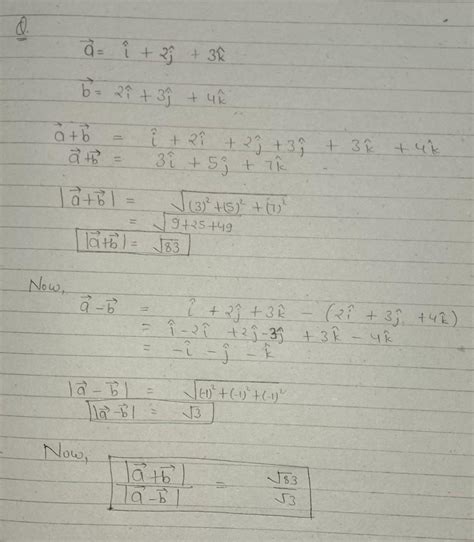 Q.
a⃗ = î + 2ĵ + 3k̂
b⃗ = 2î + 3ĵ + 4k̂
a⃗+b⃗ = î + 2î + 2ĵ + 3ĵ + 3k̂ + 4k̂
a⃗+b⃗ = 3î + 5ĵ + 7k̂
|a⃗+b⃗| = √(3)² + (5)² + (7)²
= √9+25+49
|a⃗+b⃗| = √83
Now,
a⃗ - b⃗ = î + 2ĵ + 3k̂ - (2î + 3ĵ + 4k̂)
= î - 2î + 2ĵ - 3ĵ + 3k̂ - 4k̂
= -î - ĵ - k̂
|a⃗ - b⃗| = √(-1)² + (-1)² + (-1)²
|a⃗ - b⃗| = √3
Now,
|a⃗+b⃗| / |a⃗-b⃗| = √83 / √3